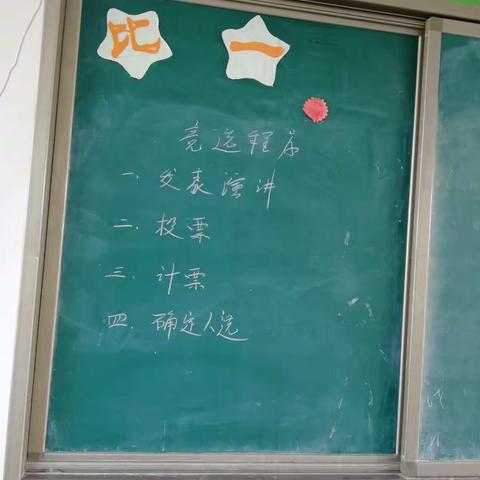 比一
竞选程序
一、发表演讲
二、投票
三、计票
四、确定人选